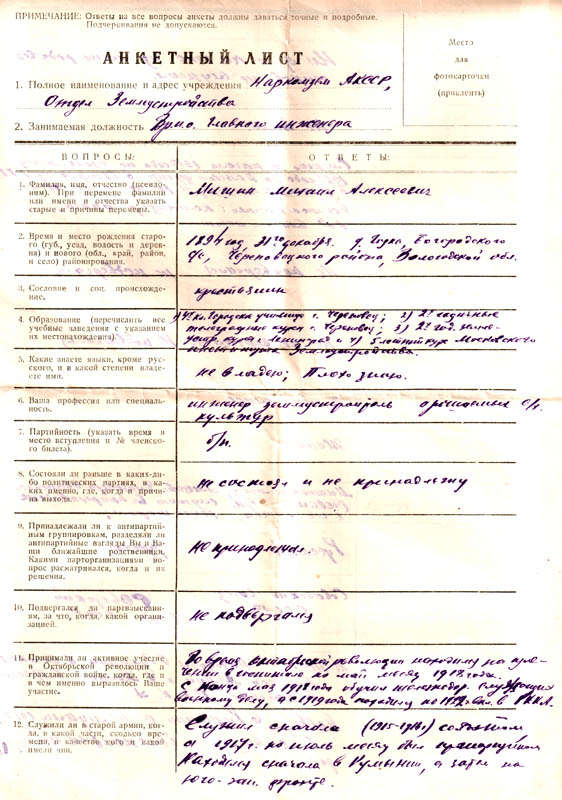 ПРИМЕЧАНИЕ: Ответы на все вопросы анкеты должны даваться точные и подробные.
Подчеркивания не допускаются.
АНКЕТНЫЙ ЛИСТ
Место
для
фотокарточки
(приклеить)
1. Полное наименование и адрес учреждения Наркомзем АКССР,
Отдел Землеустройства
2. Занимаемая должность Врио. Главного инженера
ВОПРОСЫ:
ОТВЕТЫ:
1. Фамилия, имя, отчество (псевдоним). При перемене фамилии
или имени и отчества указать
старые и причины перемены.
Мишин Михаил Алексеевич
2. Время и место рождения старого (губ., уезд, волость и деревня) и нового (обл., край, район,
и село) районирования.
1894 год, 21го декабря. д. Гора, Богородского
с/с, Череповецкого района, Вологодской обл.
3. Сословие и соц. происхождение.
крестьянин
4. Образование (перечислить все
учебные заведения с указанием
их местонахождения).
1) 4х кл. Городское училище г. Череповец; 2) 2х годичные
курсы г. Череповец; 3) 2х год.
курсы г. Ленинград и 4) 5 Московского
Землеустройства.
5. Какие знаете языки, кроме русского, и в какой степени владеете ими.
не владею; Плохо знаю.
6. Ваша профессия или специальность.
инженер землеустроитель орошаемых с/х.
культур
7. Партийность (указать время и
место вступления и № членского билета).
б/п.
8. Состояли ли раньше в каких-либо политических партиях, в каких именно, где, когда и причина выхода.
не состоял и не принадлежу
9. Принадлежали ли к антипартийным группировкам, разделяли ли
антипартийные взгляды Вы и Ваши ближайшие родственники.
Какими парторганизациями вопрос рассматривался, когда и их
решения.
не принадлежал.
10. Подвергался ли партвзысканиям, за что, когда, какой организацией.
не подвергался
11. Принимали ли активное участие
в Октябрьской революции и
гражданской войне, когда, где и
в чем именно выразилось Ваше
участие.
Во время октябрьской революции находился на
лечении в по май месяц 1918 года.
С конца мая 1918 года обучал
военному делу, а с 1919 года по 1922 в РККА.
12. Служили ли в старой армии, когда, в какой части, сколько времени, в качестве кого и какой
имели чин.
Служил сначала (1915-1916г) солдатом
а 1917г. по июль месяц был прапорщиком
Находился сначала в Румынии, а затем на
юго-зап. фронте.